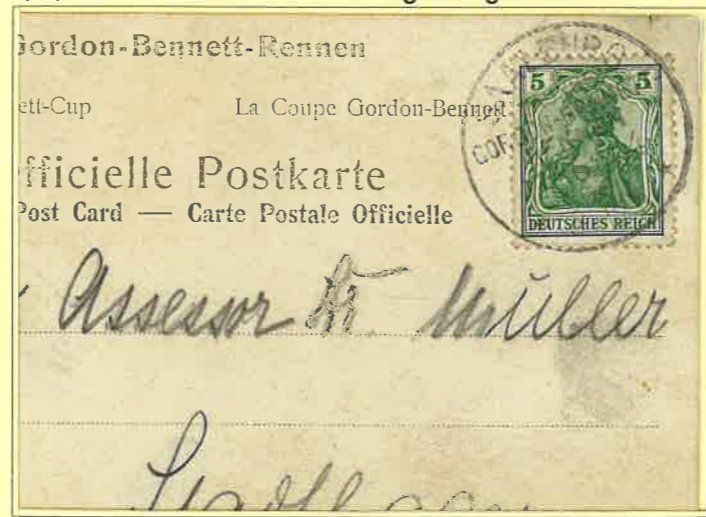 Gordon-Bennett-Rennen
ett-Cup La Coupe Gordon-Bennett
fficielle Postkarte
Post Card — Carte Postale Officielle
5 5
DEUTSCHES REICH
Assessor Dr. Müller